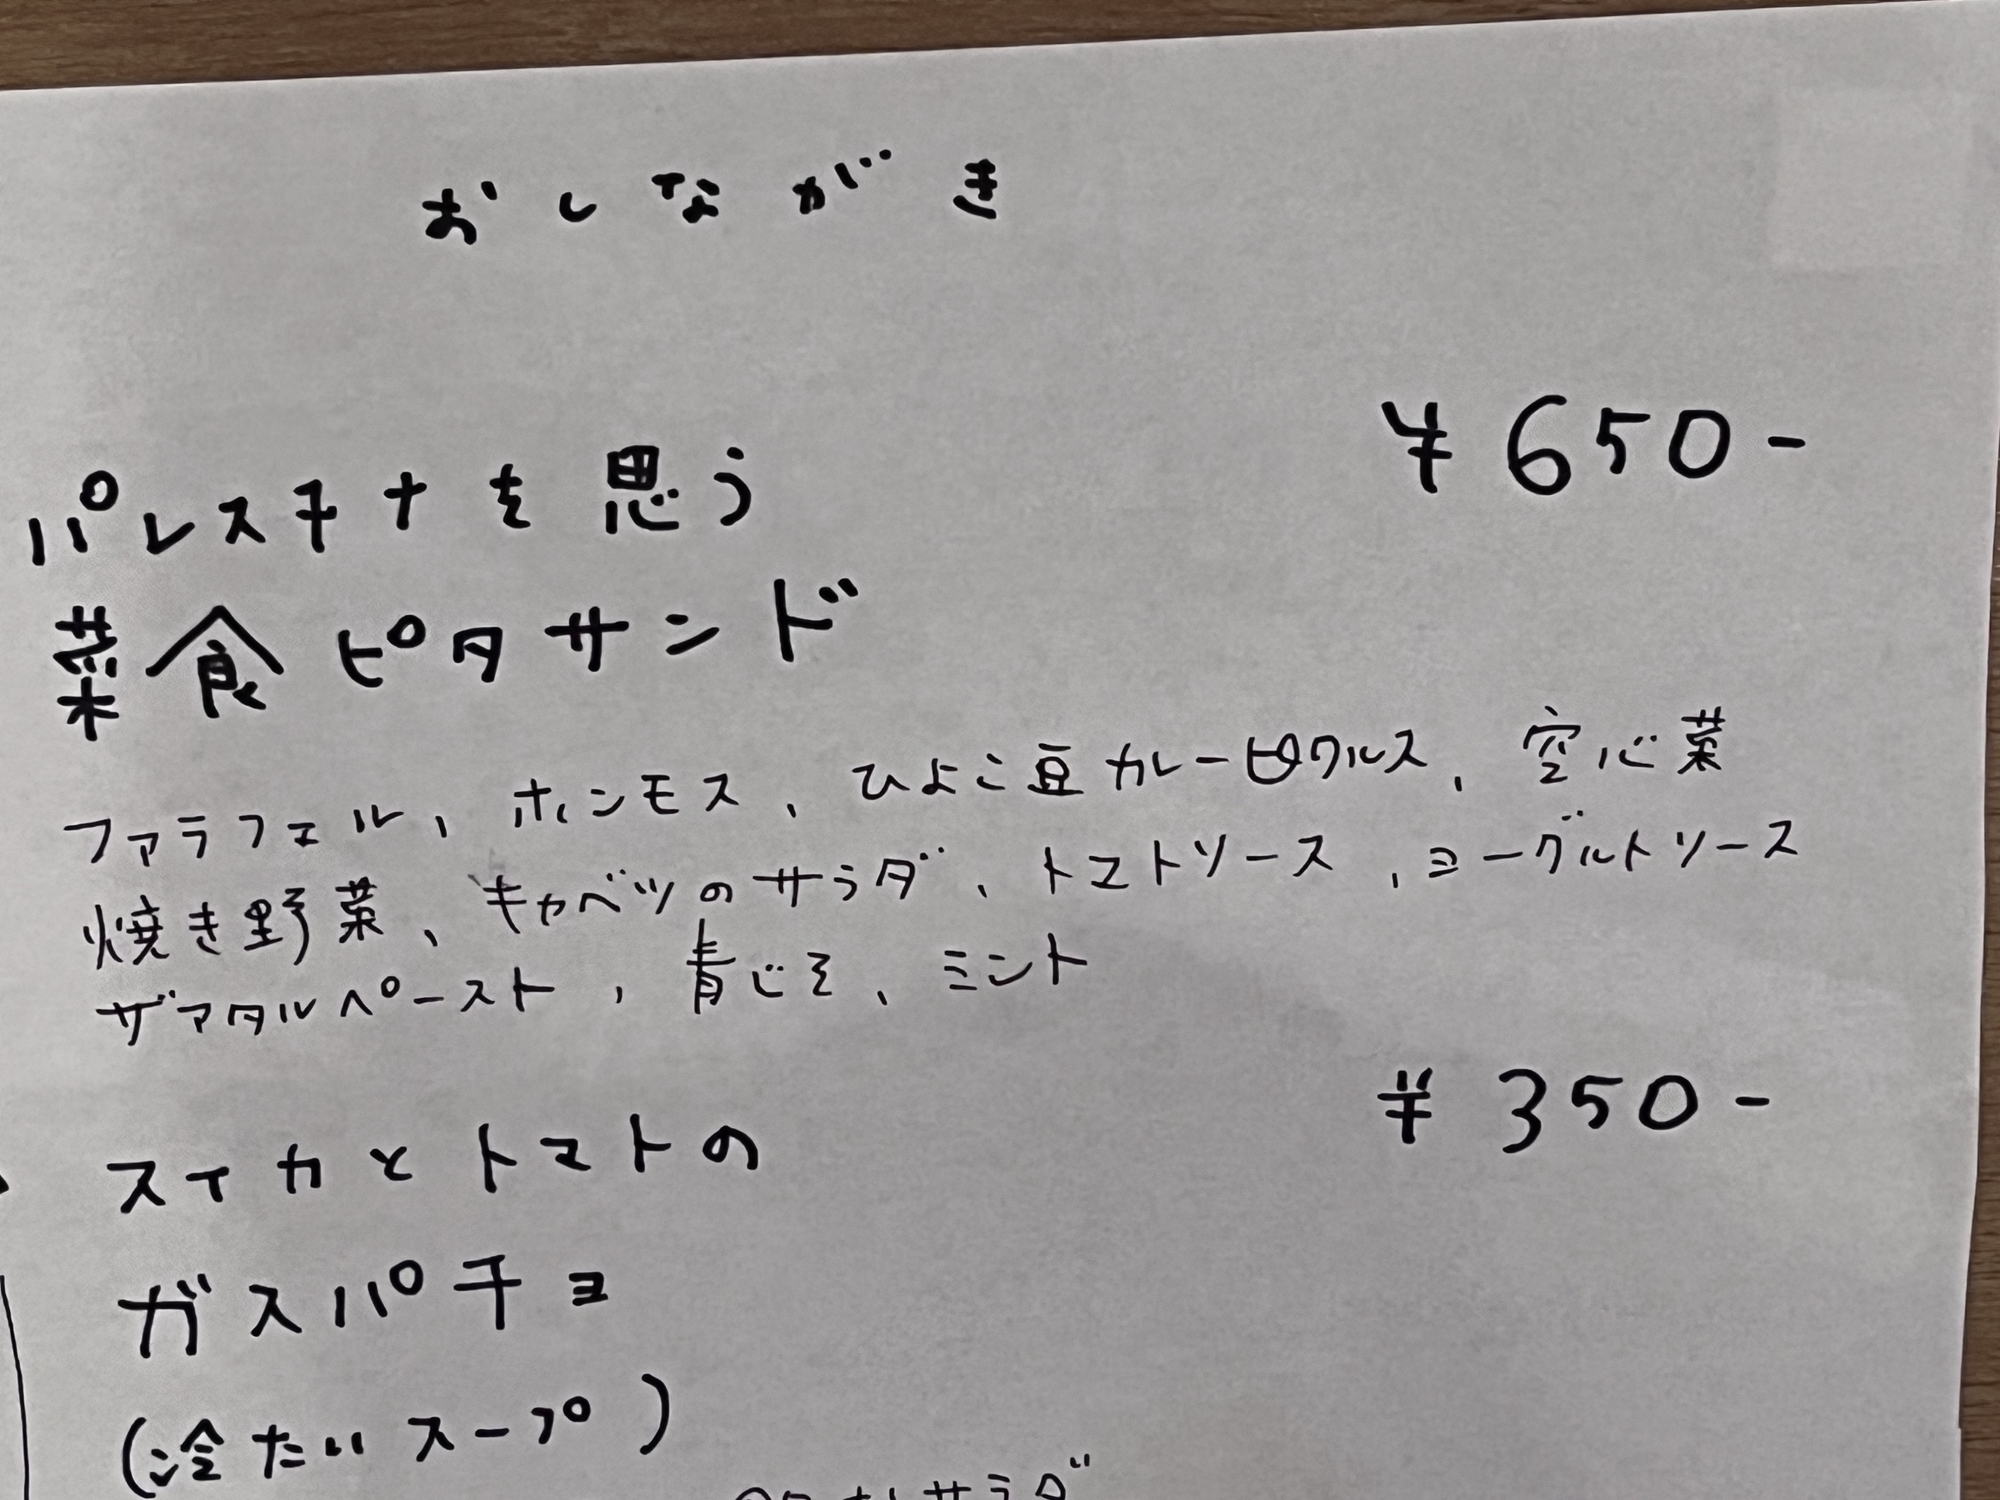 おしながき
パレスチナを思う ¥650-
菜食ピタサンド
ファラフェル、ホンモス、ひよこ豆カレーピクルス、空心菜
焼き野菜、キャベツのサラダ、トマトソース、ヨーグルトソース
ザアタルペースト、青じそ、ミント
¥350-
スイカとトマトの
ガスパチョ
(冷たいスープ)
サラダ